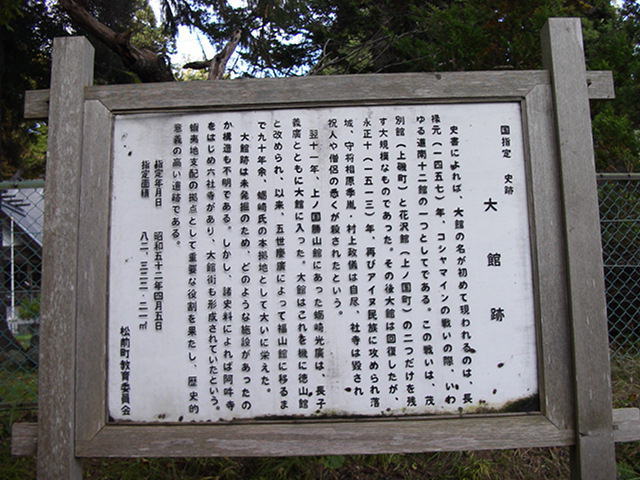 国指定 史跡
大館跡
史書によれば、大館の名が初めて現われるのは、長
禄元(一四五七)年、コシャマインの戦いの際、いわ
ゆる道南十二館の一つとしてである。この戦いは、茂
別館(上磯町)と花沢館(上ノ国町)の二つだけを残
す大規模なものであった。その後大館は回復したが、
永正十(一五一三)年、再びアイヌ民族に攻められ落
城、守将相原季胤・村上政儀は自尽、社寺は毀され
祝人や僧侶の悉くが殺されたという。
翌十一年、上ノ国勝山館にあった蛎崎光廣は、長子
義廣とともに大館に入った。大館はこれを機に徳山館
と改められ、以来、五世慶廣によって福山館に移るま
で九十年余、蛎崎氏の本拠地として大いに栄えた。
大館跡は未発掘のため、どのような施設があったの
か構造も不明である。しかし、諸史料によれば阿吽寺
をはじめ六社寺があり、大館街も形成されていたという。
蝦夷地支配の拠点として重要な役割を果たし、歴史的
意義の高い遺跡である。
指定年月日 昭和五十二年四月五日
指定面積 八二、三二三・二一㎡
松前町教育委員会